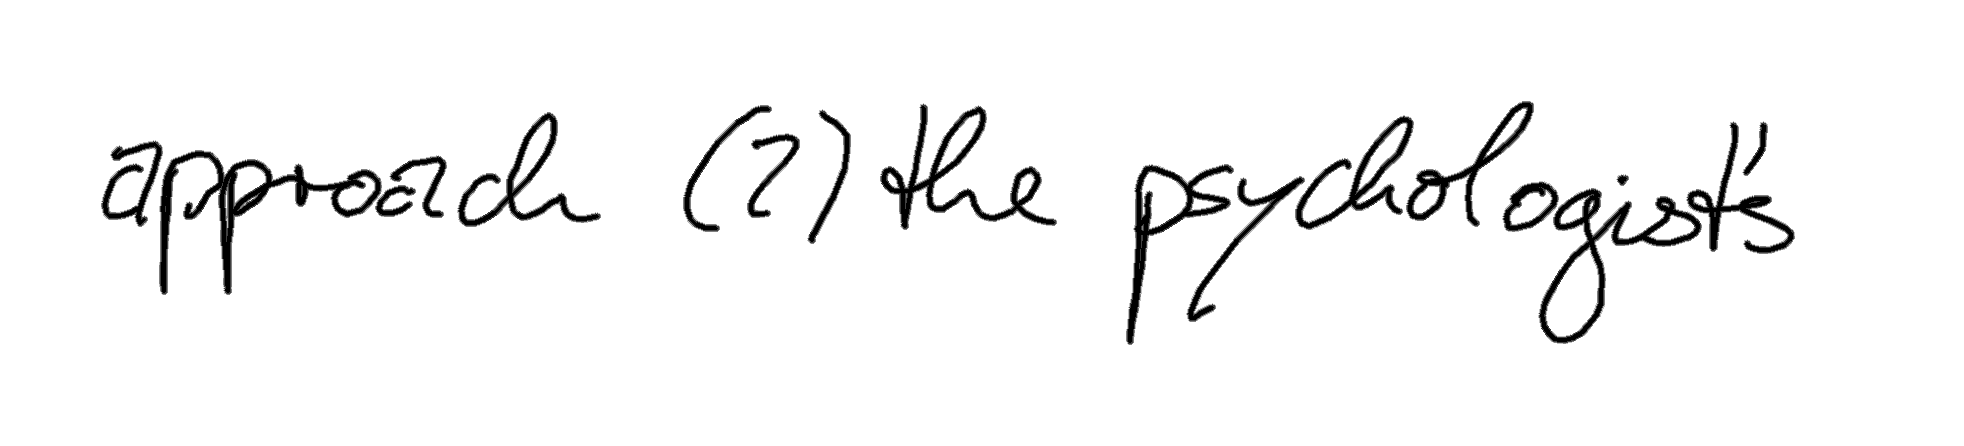 approach (2) the psychologist's